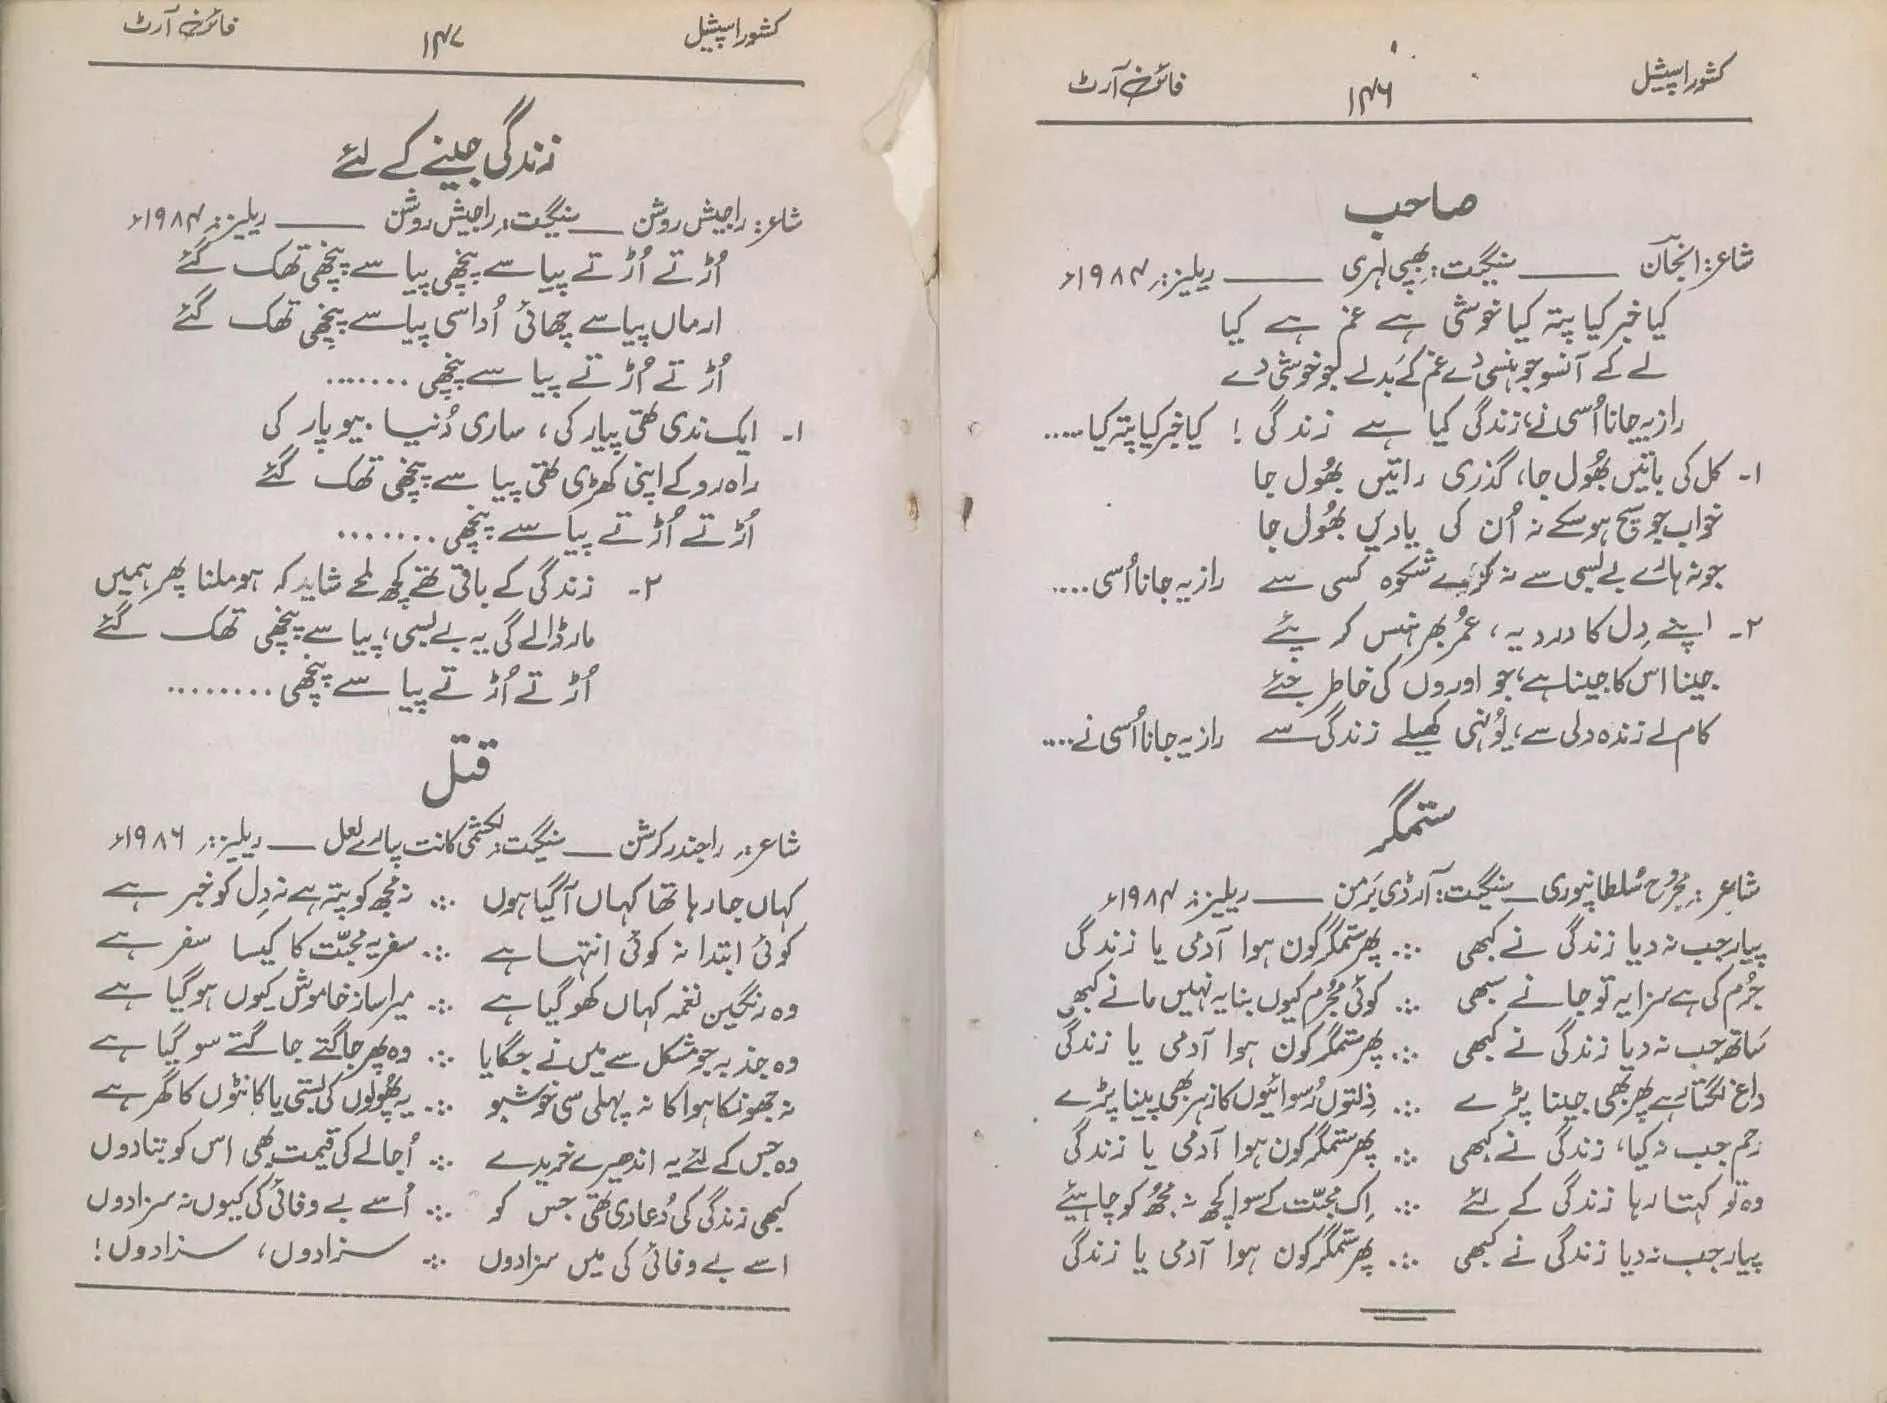 کشور اسپیشل ۱۴۶ فائن آرٹ
صاحب
شاعر: انجان ــــ سنگیت: بھپی لہری ــــ ریلیز: ۱۹۸۴ء
کیا خبر کیا پتہ کیا خوشی ہے غم ہے کیا
لے کے آنسو جو ہنسی دے غم کے بدلے جو خوشی دے
راز یہ جانا اُسی نے، زندگی کیا ہے زندگی! کیا خبر کیا پتہ کیا.....
۱۔ کل کی باتیں بھُول جا، گذری راتیں بھُول جا
خواب جو سچ ہو سکے نہ اُن کی یادیں بھُول جا
جو نہ ہارے بے بسی سے نہ کرے شکوہ کسی سے راز یہ جانا اُسی....
۲۔ اپنے دِل کا درد یہ، عمُر بھر ہنس کر پئے
جینا اس کا جینا ہے، جو اوروں کی خاطر جئے
کام لے زندہ دلی سے، یُونہی کھیلے زندگی سے راز یہ جانا اُسی نے....
ستمگر
شاعر: مجروح سُلطانپوری ــــ سنگیت: آر ڈی بَرمن ــــ ریلیز: ۱۹۸۴ء
پیار جب نہ دیا زندگی نے کبھی ∴ پھر ستمگر کون ہوا آدمی یا زندگی
جُرم کی ہے سزا یہ تو جانے سبھی ∴ کوئی مُجرم کیوں بنا یہ نہیں مانے کبھی
ساتھ جب نہ دیا زندگی نے کبھی ∴ پھر ستمگر کون ہوا آدمی یا زندگی
داغ لگتا ہے پھر بھی جینا پڑے ∴ ذِلتوں رُسوائیوں کا زہر بھی پینا پڑے
رحم جب نہ کیا، زندگی نے کبھی ∴ پھر ستمگر کون ہوا آدمی یا زندگی
وہ تو کہتا رہا زندگی کے لئے ∴ اِک محبّت کے سوا کچھ نہ مجھُ کو چاہیئے
پیار جب نہ دیا زندگی نے کبھی ∴ پھر ستمگر کون ہوا آدمی یا زندگی
کشور اسپیشل ۱۴۷ فائن آرٹ
زندگی جینے کے لئے
شاعر: راجیش روشن ــــ سنگیت: راجیش روشن ــــ ریلیز: ۱۹۸۴ء
اُڑتے اُڑتے پیا سے پنچھی پیا سے پنچھی تھک گئے
ارماں پیاسے چھائی اُداسی پیاسے پنچھی تھک گئے
اُڑتے اُڑتے پیا سے پنچھی.......
۱۔ ایک ندی تھی پیار کی، ساری دُنیا بیوپار کی
راہ روکے اپنی کھڑی تھی پیا سے پنچھی تھک گئے
اُڑتے اُڑتے پیا سے پنچھی.......
۲۔ زندگی کے باقی تھے کچھ لمحے شاید کہ ہو ملنا پھر ہمیں
مار ڈالے گی یہ بے بسی، پیا سے پنچھی تھک گئے
اُڑتے اُڑتے پیا سے پنچھی........
قتل
شاعر: راجندر کرشن ــــ سنگیت: لکشمی کانت پیارے لعل ــــ ریلیز: ۱۹۸۶ء
کہاں جا رہا تھا کہاں آ گیا ہوں ∴ نہ مجھ کو پتہ ہے نہ دِل کو خبر ہے
کوئی ابتدا نہ کوئی انتہا ہے ∴ سفر یہ محبّت کا کیسا سفر ہے
وہ رنگین نغمہ کہاں کھو گیا ہے ∴ میرا ساز خاموش کیوں ہو گیا ہے
وہ جذبہ جو مشکل سے میں نے جگایا ∴ وہ پھر جاگتے جاگتے سو گیا ہے
نہ جھونکا ہوا کا نہ پہلی سی خوشبو ∴ یہ پھُولوں کی بستی یا کانٹوں کا گھر ہے
وہ جس کے لئے یہ اندھیرے خریدے ∴ اُجالے کی قیمت بھی اس کو بتا دوں
کبھی زندگی کی دُعا دی تھی جس کو ∴ اُسے بے وفائی کی کیوں نہ سزا دوں
اسے بے وفائی کی میں سزا دوں ∴ سزا دوں، سزا دوں!